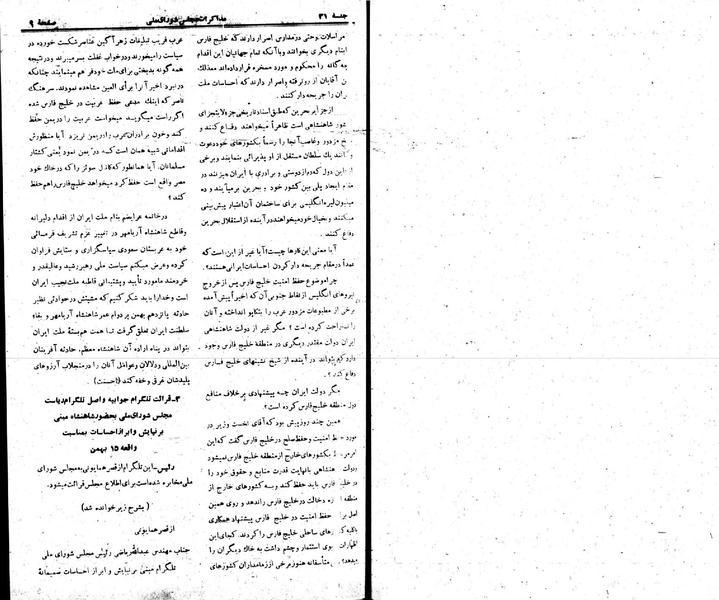 جلسهٔ ۳۱ مذاکرات مجلس شورای ملی صفحهٔ ۹
مراسلات وحتی در مدارس اصرار دارند که خلیج فارس
ابنام دیگری بخوانند وبا آنکه تمام جهانیان این اقدام
بچه گانه را محکوم و مورد مسخره قرارداده‌اند معذلك
آقایان از رو نرفته واصرار دارند که احساسات ملت
ایران را جریحه دار کنند.
از جزایر بحرین که طبق اسناد تاریخی جزء لایتجزای
شاهنشاهی است ظاهراً میخواهند دفاع کنند و
مزدور وغاصب آنجا را رسماً بکشورهای خود دعوت
یك سلطان مستقل از او پذیرائی بنمایند وبرخی
این دول که دم از دوستی و برادری با ایران میزنند در
مقام ایجاد پلی بین کشور خود و بحرین برمیآیند و ده
میلیون لیره انگلیسی برای ساختمان آن اعتبار پیش بینی
میکنند و بخیال خود میخواهند در آینده از استقلال بحرین
دفاع کنند.
آیا معنی این کارها چیست؟ آیا غیر از این است که
عمداً درمقام جریحه دار کردن احساسات ایرانی هستند؟.
چرا موضوع حفظ امنیت خلیج فارس پس از خروج
نیروهای انگلیس از نقاط جنوبی آن که اخیراً پیش آمده
برخی از مطبوعات مزدور عرب را بتکاپو انداخته و آنان
را ناراحت کرده است؟ مگر غیر از دولت شاهنشاهی
ایران دولت مقتدر دیگری در منطقهٔ خلیج فارس وجود
دارد که بتواند در آینده از شیخ نشینهای خلیج فارس
دفاع کند؟.
مگر دولت ایران چه پیشنهادی برخلاف منافع
دول منطقه خلیج فارس کرده است؟
همین چند روز پیش بود که آقای نخست وزیر در
مورد حفظ امنیت وحفظ صلح در خلیج فارس گفت که این
بکشورهای خارج از منطقه خلیج فارس نمیشود
ودولت شاهنشاهی با نهایت قدرت منافع و حقوق خود را
در خلیج فارس باید حفظ کند و به کشورهای خارج از
منطقه دخالت در خلیج فارس را ندهد و روی همین
اصل برای حفظ امنیت در خلیج فارس پیشنهاد همکاری
بکلیه کشورهای ساحلی خلیج فارس را کردند. کجای این
اظهارات بوی استثمار و چشم داشت به خاك دیگران را
میدهد؟ متأسفانه هنوز برخی از زمامداران کشورهای
عرب فریب تبلیغات زهرآگین عناصر شکست خورده در
سیاست را میخورند و در خواب غفلت بسرمیبرند ودرنتیجه
همه گونه بدبختی برای ملت خود فرهم مینمایند چنانکه
در نبرد اخیر آن را برأی العین مشاهده نمودند. سرهنگ
ناصر که اینك مدعی حفظ عربیت در خلیج فارس شده
اگر راست میگوید میخواست عربیت را در یمن حفظ
کند وخون برادران عرب را در یمن نریزد آیا منظورش
اقداماتی شبیه همان است که در یمن نمود یعنی کشتار
مسلمانان. آیا همانطور که کانال سوئز را که در خاك خود
مصر واقع است حفظ کرد میخواهد خلیج فارس را هم حفظ
کند؟
در خاتمه عرایضم بنام ملت ایران از اقدام دلیرانه
وقاطع شاهنشاه آریامهر در تغییر عزم تشریف فرمائی
خود به عربستان سعودی سپاسگزاری و ستایش فراوان
کرده وعرض میکنم سیاست ملی رهبر رشید و عالیقدر و
خردمند ما مورد تأیید و پشتیبانی قاطبه ملت نجیب ایران
است و خدا را باید شکر کنیم که مشیتش در حوادثی نظیر
حادثه پانزدهم بهمن بر دوام عمر شاهنشاه آریامهر و بقاء
سلطنت ایران تعلق گرفت تا همت همبستهٔ ملت ایران
بتواند در پناه اراده آن شاهنشاه معظم، حادثه آفرینان
بین‌المللی ودلالان وعوامل آنان را در منجلاب آرزوهای
پلیدشان غرق وخفه کند (احسنت).
۳ـ قرائت تلگرام جوابیه واصل تلگرام ریاست
مجلس شورای ملی بحضور شاهنشاه مبنی
بر نیایش و ابراز احساسات بمناسبت
واقعه ۱۵ بهمن
رئیس ـ این تلگرام از قصر همایونی به مجلس شورای
ملی مخابره شده است برای اطلاع مجلس قرائت میشود.
(بشرح زیر خوانده شد)
از قصر همایونی
جناب مهندس عبدالله ریاضی رئیس مجلس شورای ملی
تلگرام مبنی بر نیایش و ابراز احساسات صمیمانهٔ